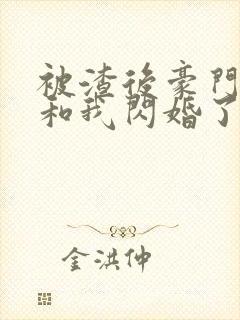 被渣後豪門
和我閃婚了
金洪仲